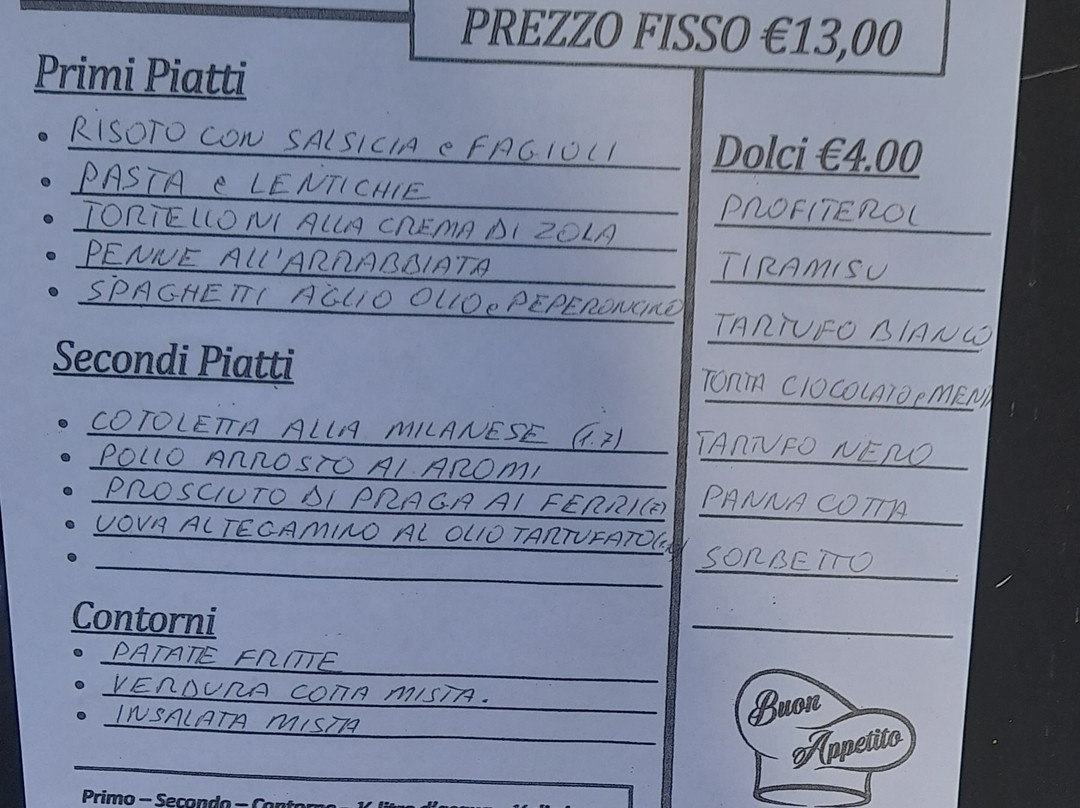 PREZZO FISSO €13,00
Primi Piatti
RISOTO CON SALSICIA e FAGIOLI
PASTA e LENTICHIE
TORTELLONI ALLA CREMA DI ZOLA
PENNE ALL'ARRABBIATA
SPAGHETTI AGLIO OLIO e PEPERONCINO
Secondi Piatti
COTOLETTA ALLA MILANESE (1.7)
POLLO ARROSTO AI AROMI
PROSCIUTO DI PRAGA AI FERRI
UOVA AL TEGAMINO AL OLIO TARTUFATO
Contorni
PATATE FRITTE
VERDURA COTTA MISTA.
INSALATA MISTA
Primo – Secondo – Contorno
Dolci €4.00
PROFITEROL
TIRAMISU
TARTUFO BIANCO
TORTA CIOCOLATO e
TARTUFO NERO
PANNA COTTA
SORBETTO
Buon
Appetito